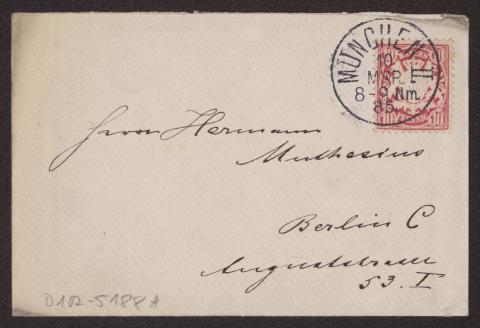 MÜNCHEN II
10
MÄR.
8-9 Nm.
85.
10 10
Herrn Hermann
Muthesius
Berlin C
Auguststrasse
53. I
D102-5188 A